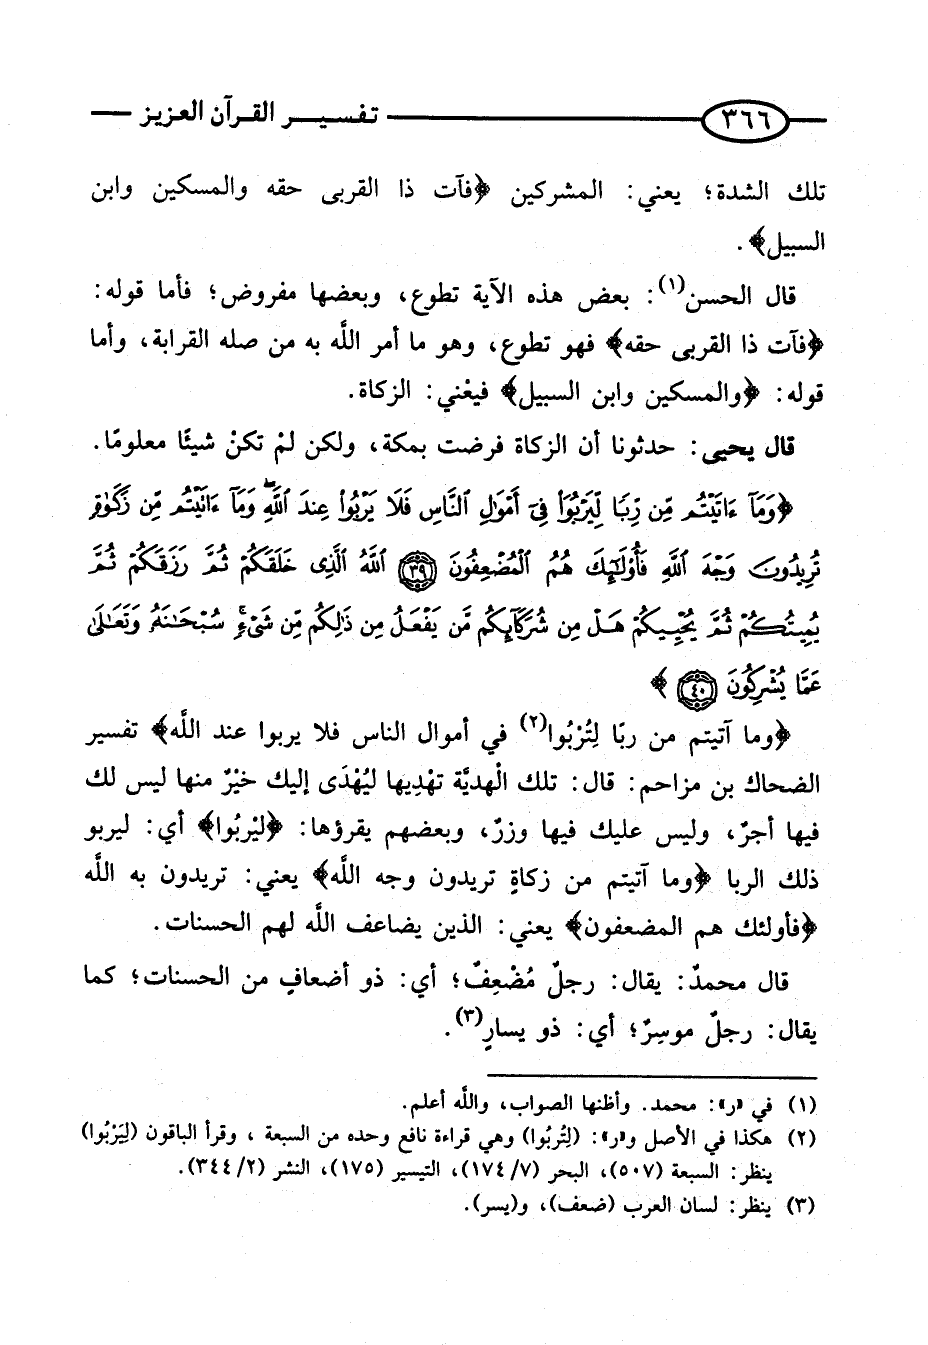 ٣٦٦ تفسير القرآن العزيز
تلك الشدة؛ يعني: المشركين ﴿فآت ذا القربى حقه والمسكين وابن
السبيل﴾.
قال الحسن(١): بعض هذه الآية تطوع، وبعضها مفروض؛ فأما قوله:
﴿فآت ذا القربى حقه﴾ فهو تطوع، وهو ما أمر اللَّه به من صله القرابة، وأما
قوله: ﴿والمسكين وابن السبيل﴾ فيعْني: الزكاة.
قال يحيى: حدثونا أن الزكاة فرضت بمكة، ولكن لمْ تكنْ شيئًا معلومًا.
﴿وَمَآ ءَاتَيْتُم مِّن رِّبًا لِّيَرْبُوَا۟ فِىٓ أَمْوَٰلِ ٱلنَّاسِ فَلَا يَرْبُوا۟ عِندَ ٱللَّهِ ۖ وَمَآ ءَاتَيْتُم مِّن زَكَوٰةٍ
تُرِيدُونَ وَجْهَ ٱللَّهِ فَأُو۟لَٰٓئِكَ هُمُ ٱلْمُضْعِفُونَ ٣٩ ٱللَّهُ ٱلَّذِى خَلَقَكُمْ ثُمَّ رَزَقَكُمْ ثُمَّ
يُمِيتُكُمْ ثُمَّ يُحْيِيكُمْ هَلْ مِن شُرَكَآئِكُم مَّن يَفْعَلُ مِن ذَٰلِكُم مِّن شَىْءٍ ۚ سُبْحَٰنَهُۥ وَتَعَٰلَىٰ
عَمَّا يُشْرِكُونَ ٤٠﴾
﴿وما آتيتم من ربًا لِتُرْبُوا(٢) في أموال الناس فلا يربوا عند اللَّه﴾ تفسير
الضحاك بن مزاحم: قال: تلك الْهديَّة تهْدِيها ليُهْدَى إليك خيْرٌ منها ليس لك
فيها أجرٌ، وليس عليك فيها وزرٌ، وبعضهم يقرؤها: ﴿ليْربُوا﴾ أي: ليربو
ذلك الربا ﴿وما آتيتم من زكاةٍ تريدون وجه اللَّه﴾ يعني: تريدون به اللَّه
﴿فأولئك هم المضعفون﴾ يعني: الذين يضاعف اللَّه لهم الحسنات.
قال محمدٌ: يقال: رجلٌ مُضْعِفٌ؛ أي: ذو أضعافٍ من الحسنات؛ كما
يقال: رجلٌ موسِرٌ؛ أي: ذو يسارٍ(٣).
(١) في «ر»: محمد. وأظنها الصواب، واللَّه أعلم.
(٢) هكذا في الأصل و«ر»: (لِتُربُوا) وهي قراءة نافع وحده من السبعة ، وقرأ الباقون (لِيَرْبُوا)
ينظر: السبعة (٥٠٧)، البحر (٧/ ١٧٤)، التيسير (١٧٥)، النشر (٢/ ٣٤٤).
(٣) ينظر: لسان العرب (ضعف)، و(يسر).